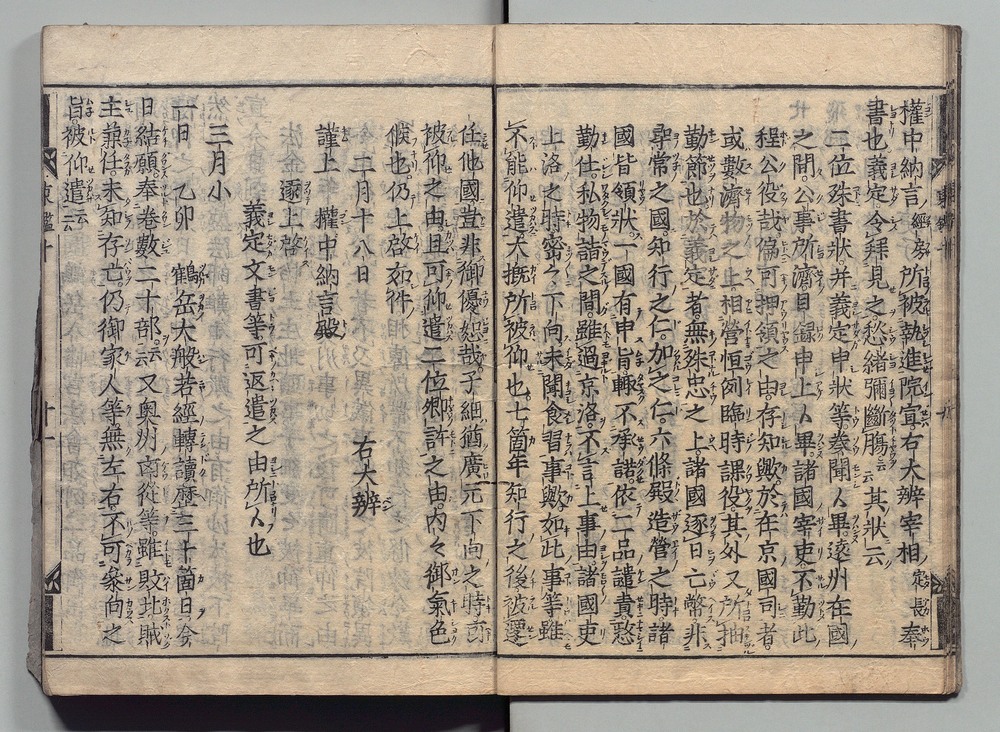 權中納言 經房 所被執進院宣右大辨宰相 定長 奉
書也義定令拜見之愁緒彌斷膓云云其狀云
二位殊書狀并義定申狀等奏聞候畢遠州在國
之間公事所濟目錄申上候畢諸國宰吏不勤此
程公役哉偏可押領之由存知歟於在京國司者
或數濟物之上相營恒例臨時課役其外又所抽
勤節也於義定者無殊忠之上諸國逐日亡弊非
尋常之國知行之仁加之仁六條殿造營之時諸
國皆領狀一國有申旨輙不承諾依二品譴責愁
勤仕私物詣之間雖過京洛不言上事由諸國吏
上洛之時密々下向未聞食習事歟如此事等雖
不能仰遣大概所被仰也七箇年知行之後被遷
任他國豈非御優恕哉子細猶廣元下向之時
被仰之由且可仰遣二位卿許之由內々御氣色
候也仍上啓如件
二月十八日 右大辨
謹上 權中納言殿
逐上啓
義定文書等可返遣之由所候也
三月小
一日 乙卯 鶴岳大般若經轉讀歷三十箇日今
日結願奉卷數二十部云云又奧州凶從等雖敗北賊
主兼任未知存亡仍御家人等無左右不可參向之
旨被仰遣云云
東鑑十
十一